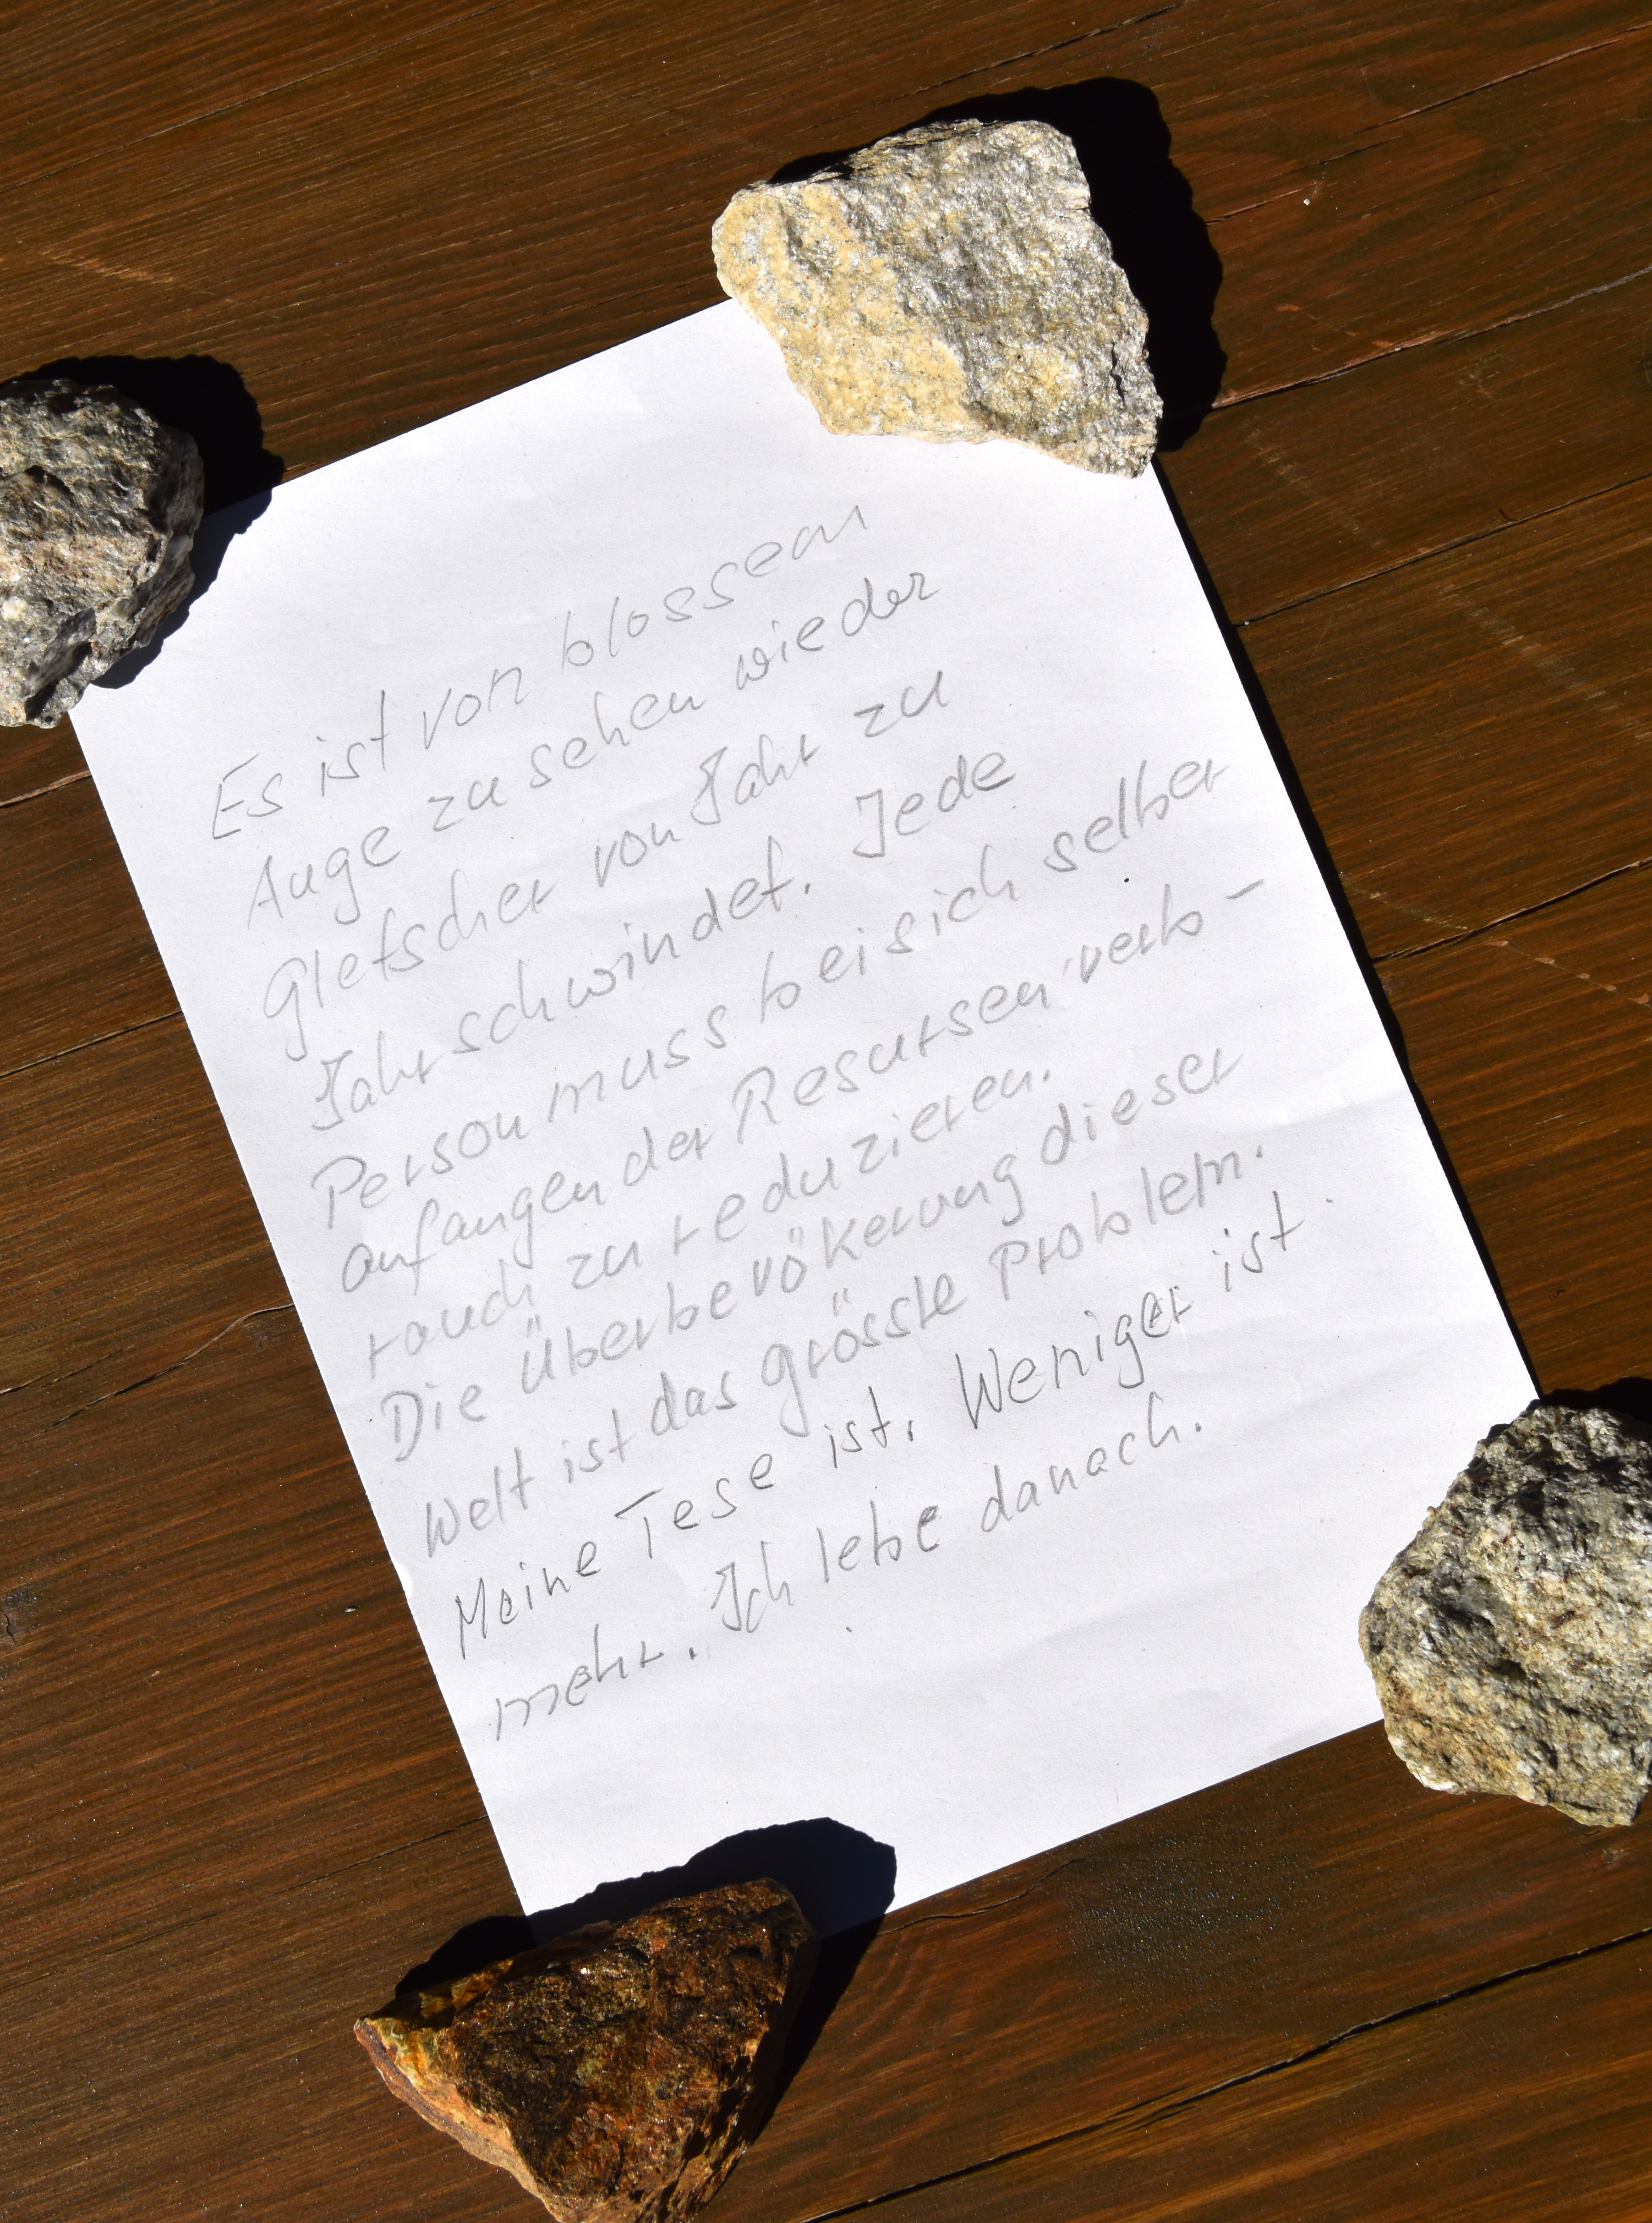 Es ist von blossem
Auge zu sehen wieder
Gletscher von Jahr zu
Jahr schwindet. Jede
Person muss bei sich selber
anfangen der Resursen verb-
rauch zu reduzieren.
Die Überbevökerung dieser
Welt ist das grösste Problem.
Meine Tese ist. Weniger ist
mehr. Ich lebe danach.